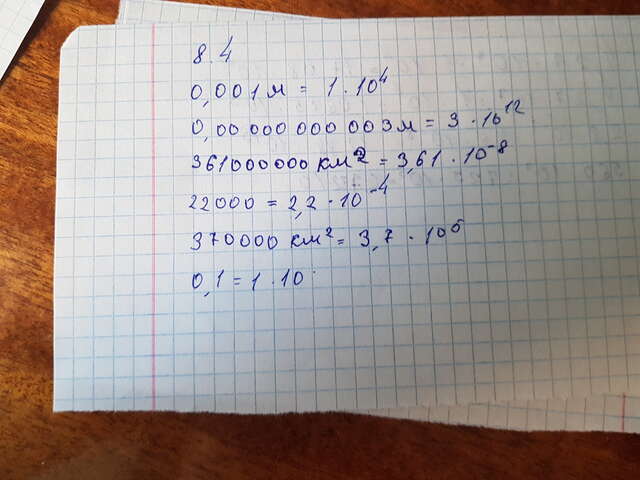 8.4
0,001м = 1 · 10⁴
0,00 000 000 000 003м = 3 · 10¹²
361000000 км² = 3,61 · 10⁻⁸
22000 = 2,2 · 10⁻⁴
370000 км² = 3,7 · 10⁶
0,1 = 1 · 10